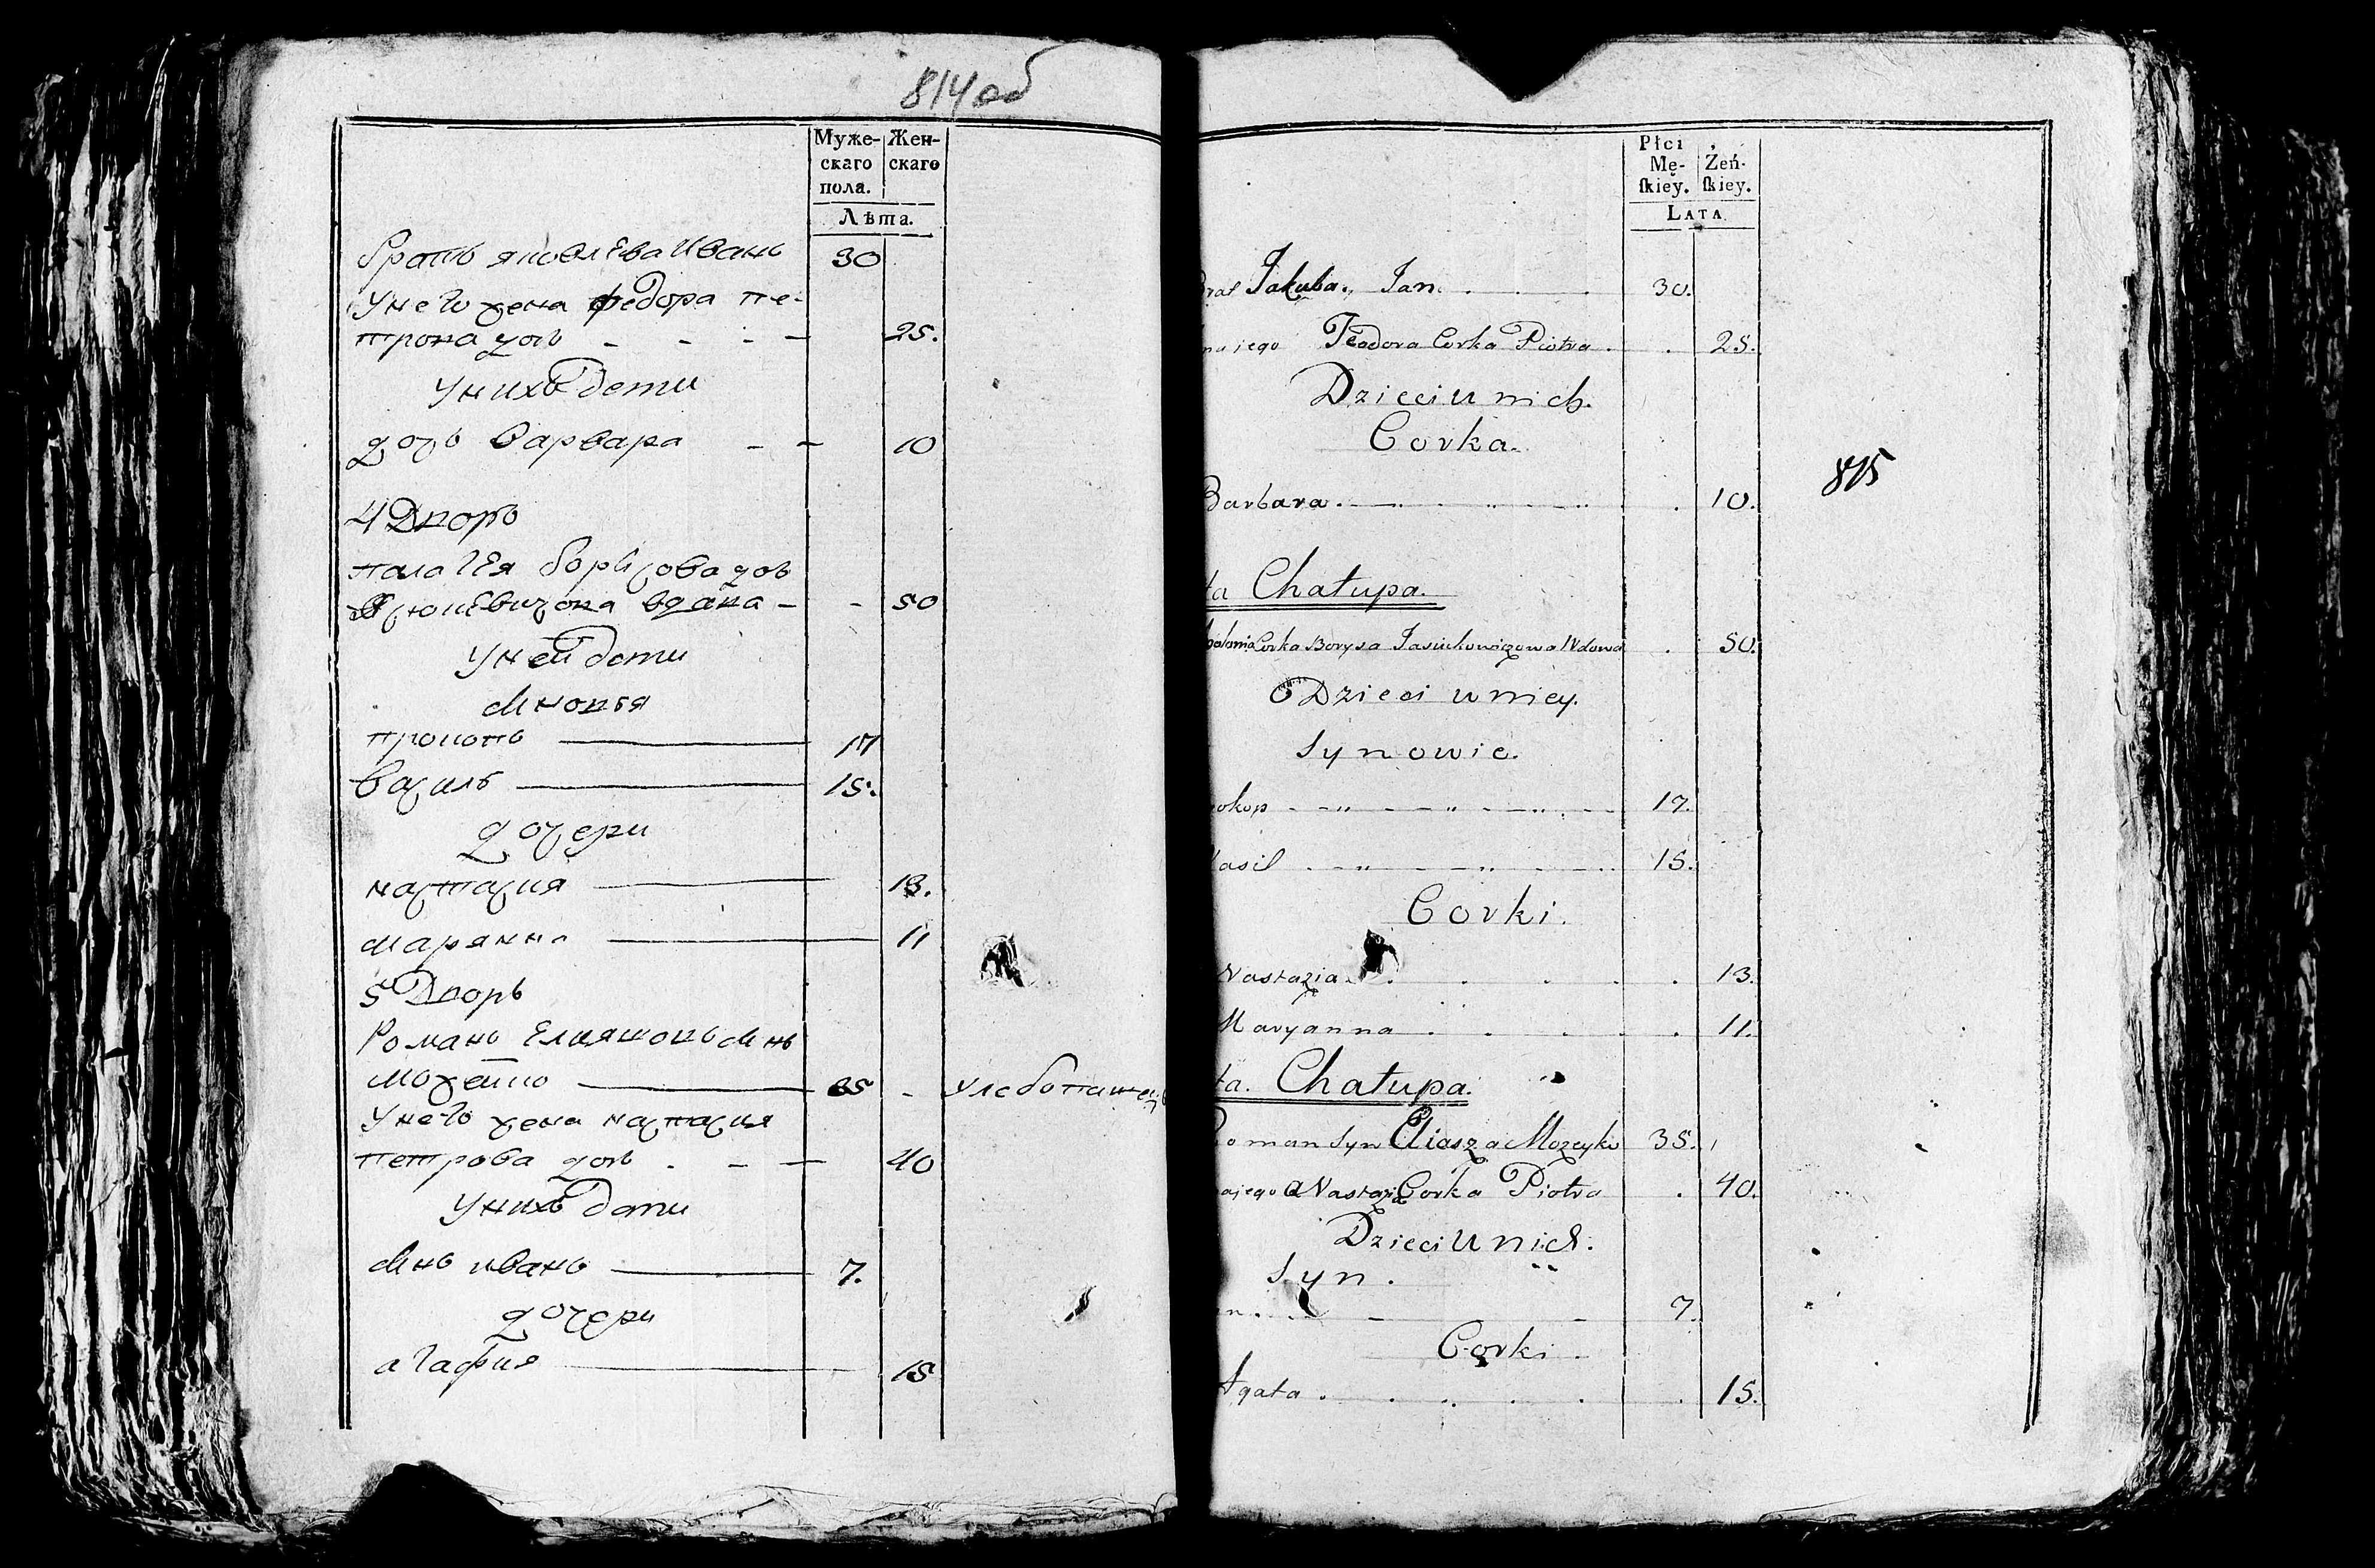 814 об
Муже-
скаго
пола.
Жен-
скаго
Лѣта.
братъ яковлева Иванъ 30
Унего жена федора пе-
трова дочь - - - - 25.
Унихъ дети
дочь варвара - - 10
4 Дворъ
палагея борисова дочь
вдава - - 50
Уней дети
Синовья
прокопъ 17
василь 15.
дочери
настасия 13.
Марянна 11
5 Дворъ
Романъ Елияшовъ Синъ
Можейко 35 - хлебопашец
Унего жена настасия
петрова дочь . - - 40
Унихъ дети
Синъ иванъ 7.
дочери
агафия 15
Płci
Mę-
ſkiey.
Żeń-
ſkiey.
LATA.
815
Brat Jakuba. Jan. . . . 30.
jego Teodora Corka Piotra . . 25.
Dzieci u nich.
Corka.
Barbara. . 10.
ta Chałupa.
Corka Borysa Jasiukowiczowa Wdowa . 50.
Dzieci u niey.
Synowie.
okop 17.
asil 15.
Corki.
Nastazia . . . . . . 13.
Maryanna . . . . . 11.
ta. Chałupa.
Roman Syn Eliasza Mozeyko 35.
jego Nastazia Corka Piotra . 40.
Dzieci U nich.
Syn.
n. 7.
Corki.
Agata . . . . . . 15.